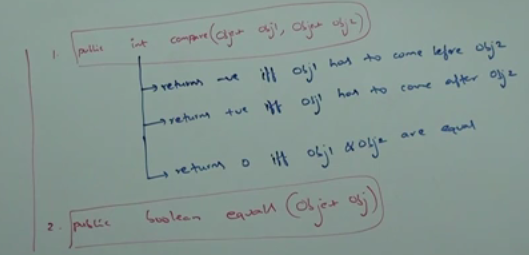 1. public int compare(Object obj1, Object obj2)
→ returns -ve iff obj1 has to come before obj2
→ returns +ve iff obj1 has to come after obj2
→ returns 0 iff obj1 & obj2 are equal
2. public boolean equals (Object obj)